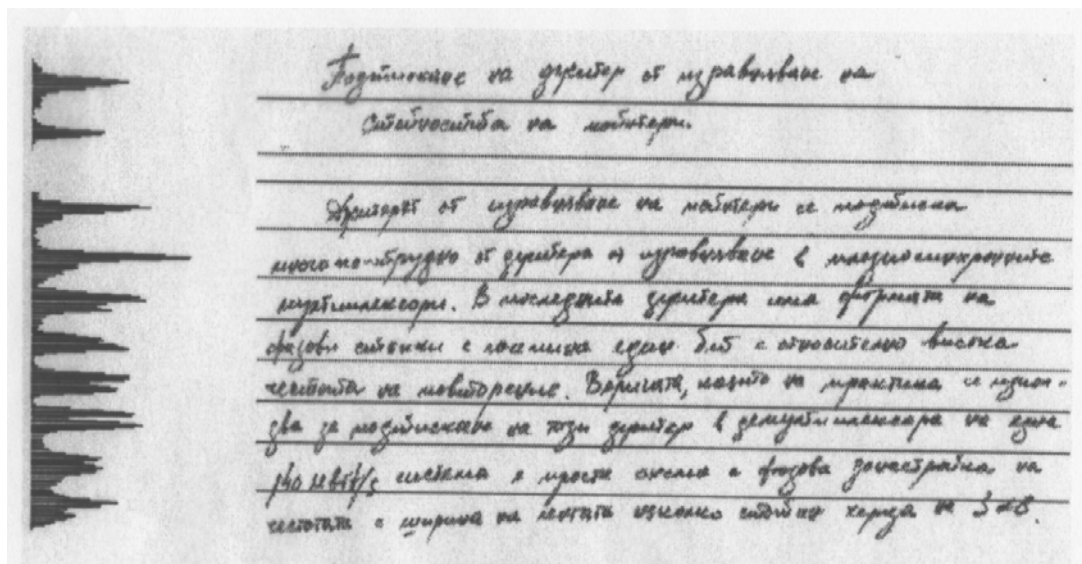 Подтискане на джитер от изравняване на
стойностите на пойнтери.
Джитерът от изравняване на пойнтери се подтиска
много по-трудно от джитера от изравняване в плезиохронните
мултиплексори. В последните джитера има формата на
фазови стъпки с големина един бит с относително висока
честота на повторение. Веригата, която на практика се използ-
ва за подтискане на този джитер в демултиплексора на една
140 Mbit/s система е проста схема с фазова донастройка на
честотата с ширина на лентата няколко стотин херца на 3 dB.